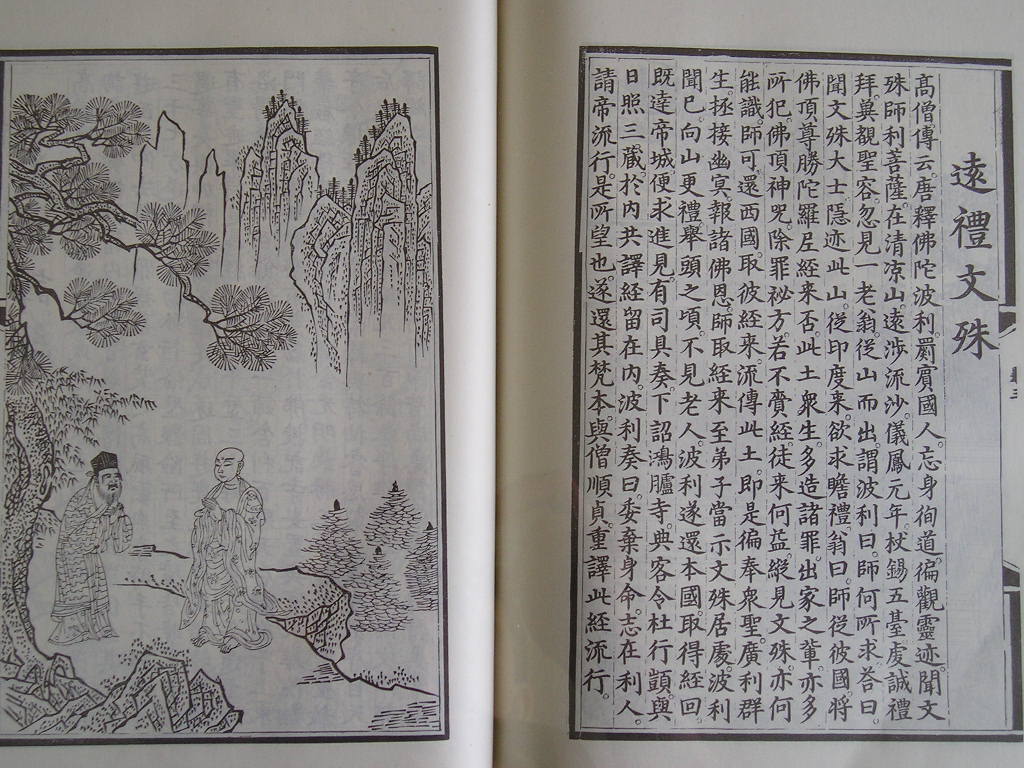 遠禮文殊
高僧傳云。唐釋佛陀波利。罽賓國人。忘身徇道。徧觀靈迹。聞文
殊師利菩薩。在清涼山。遠涉流沙。儀鳳元年。杖錫五臺。虔誠禮
拜。冀覩聖容。忽見一老翁。從山而出。謂波利曰。師何所求。答曰。
聞文殊大士。隱迹此山。從印度來。欲求瞻禮。翁曰。師從彼國。將
佛頂尊勝陀羅尼經來否。此土眾生。多造諸罪。出家之輩。亦多
所犯。佛頂神咒。除罪祕方。若不賷經。徒來何益。縱見文殊。亦何
能識。師可還西國。取彼經來。流傳此土。即是徧奉眾聖。廣利群
生。拯接幽冥。報諸佛恩。師取經來至。弟子當示文殊居處。波利
聞已。向山更禮。舉頭之頃。不見老人。波利遂還本國。取得經回。
既達帝城。便求進見。有司具奏。下詔鴻臚寺。典客令杜行顗。與
日照三藏。於內共譯。經留在內。波利奏曰。委棄身命。志在利人。
請帝流行。是所望也。遂還其梵本。與僧順貞。重譯此經流行。